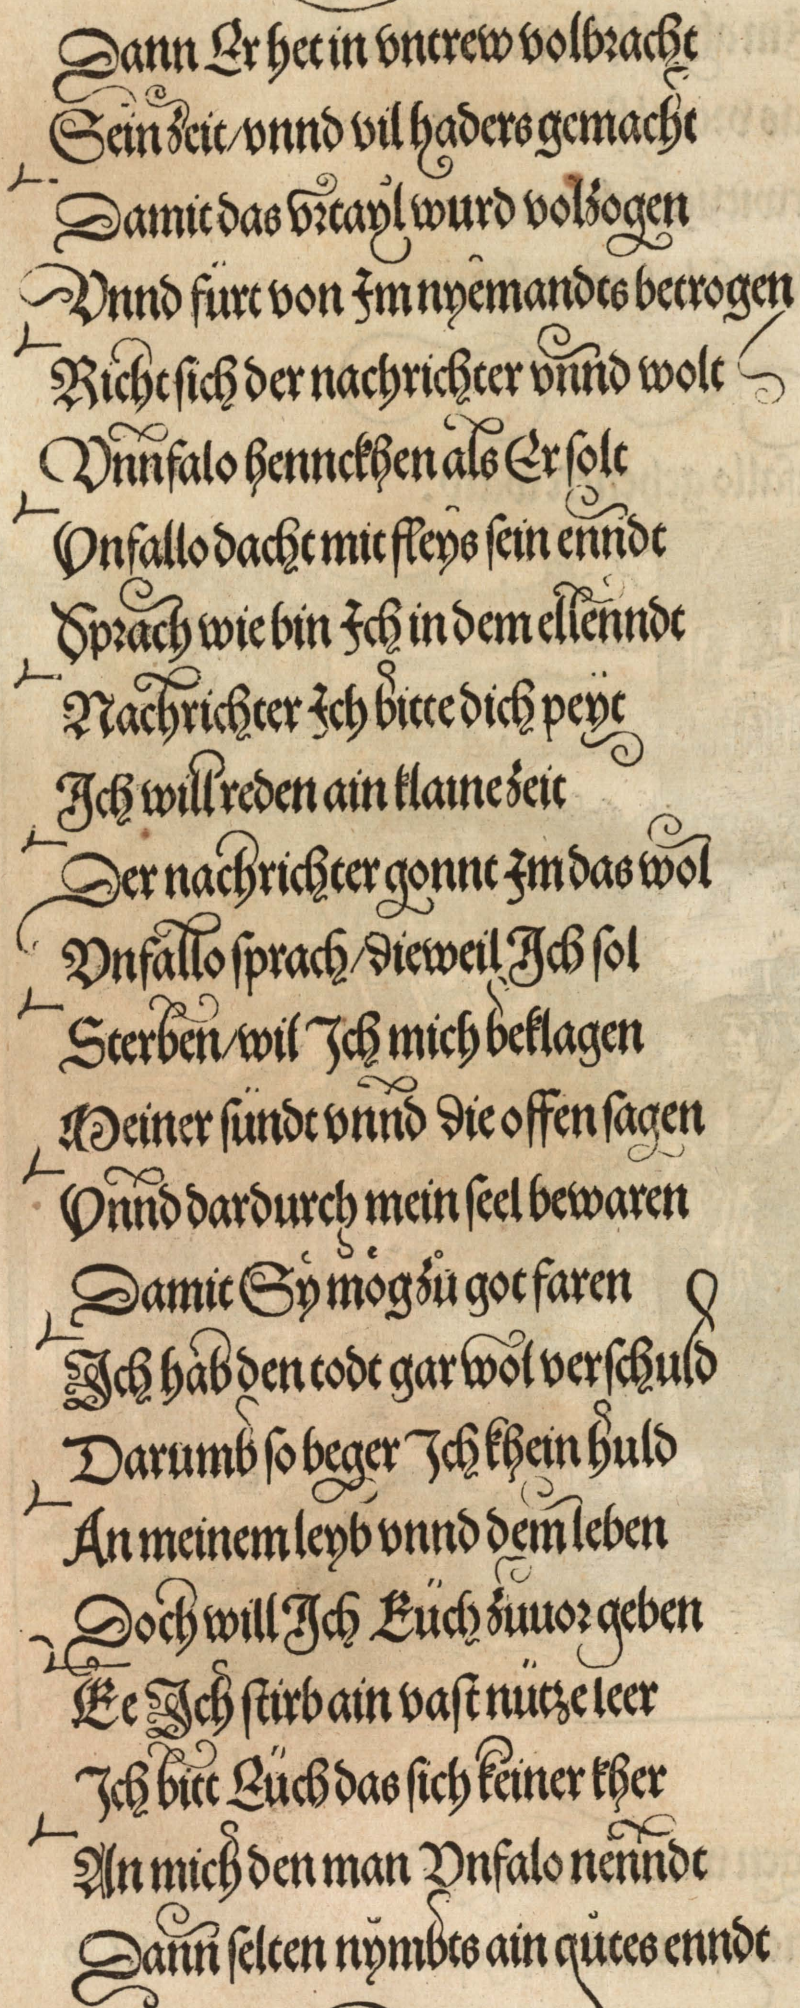 Dann Er het in vntrew volbracht
Sein zeit/vnnd vil haders gemacht
Damit das vrtayl wurd volzogen
Vnnd fürt von Im nyemandts betrogen
Richt sich der nachrichter vnnd wolt
Vnnfalo hennckhen als Er solt
Vnfallo dacht mit fleys sein enndt
Sprach wie bin Ich in dem ellenndt
Nachrichter Ich bitte dich peyt
Ich will reden ain klaine zeit
Der nachrichter gonnt Im das wol
Vnfallo sprach/dieweil Ich sol
Sterben/wil Ich mich beklagen
Meiner sündt vnnd die offen sagen
Vnnd dardurch mein seel bewaren
Damit Sy mög zů got faren
Ich hab den todt gar wol verschuld
Darumb so beger Ich khein huld
An meinem leyb vnnd dem leben
Doch will Ich Eüch zuuor geben
Ee Ich stirb ain vast nütze leer
Ich bitt Eüch das sich keiner kher
An mich den man Vnfalo nenndt
Dann selten nymbts ain gůtes enndt